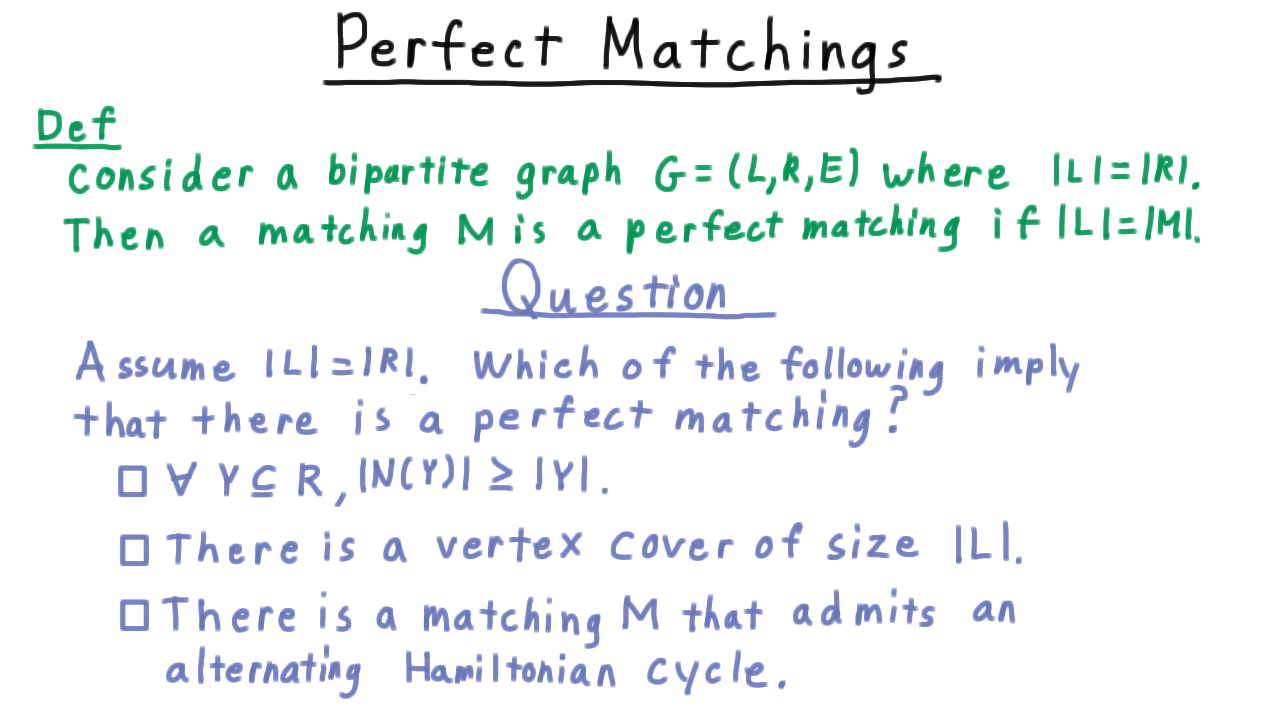 Perfect Matchings
Def
Consider a bipartite graph G = (L,R,E) where |L|=|R|.
Then a matching M is a perfect matching if |L|=|M|.
Question
Assume |L|=|R|. Which of the following imply
that there is a perfect matching?
□ ∀ Y ⊆ R, |N(Y)| ≥ |Y|.
□ There is a vertex cover of size |L|.
□ There is a matching M that admits an
alternating Hamiltonian cycle.